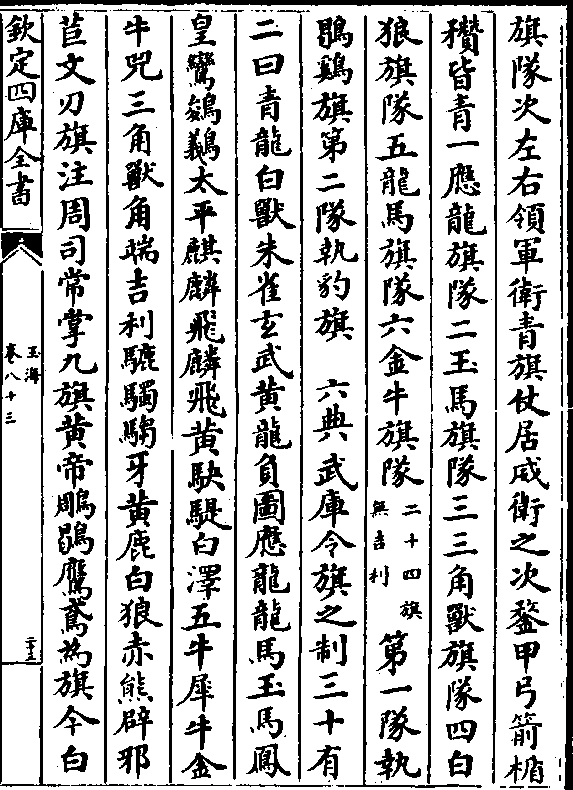 旗隊次左右領軍衛青旗仗居威衛之次鍪甲弓箭楯
穳皆青一應龍旗隊二玉馬旗隊三三角獸旗隊四白
狼旗隊五龍馬旗隊六金牛旗隊二十四旗無吉利第一隊執
鶡鷄旗第二隊執豹旗 六典武庫令旗之制三十有
二曰青龍白獸朱雀玄武黄龍負圖應龍龍馬玉馬鳳
皇鸞鵕鸃太平麒麟飛麟飛黄駃騠白澤五牛犀牛金
牛兕三角獸角端吉利驣騶牙黄鹿白狼赤熊辟邪
苣文刃旗注周司常掌九旗黄帝鵰鶡鷹鳶為旗今白
欽定四庫全書
玉海
卷八十三
二十三